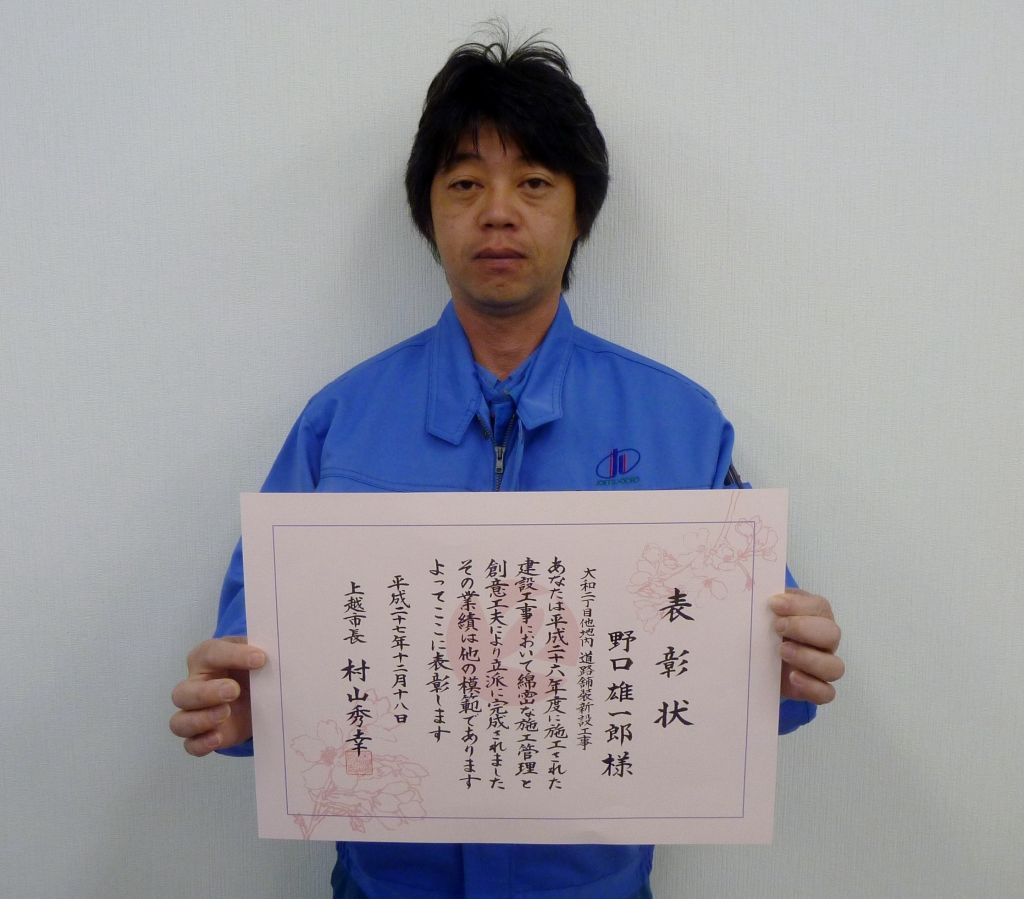 表彰状
野口雄一郎様
大和二丁目他地内 道路舗装新設工事
あなたは平成二十六年度に施工された
建設工事において綿密な施工管理と
創意工夫により立派に完成されました
その業績は他の模範であります
よってここに表彰します
平成二十七年十二月十八日
上越市長 村山秀幸